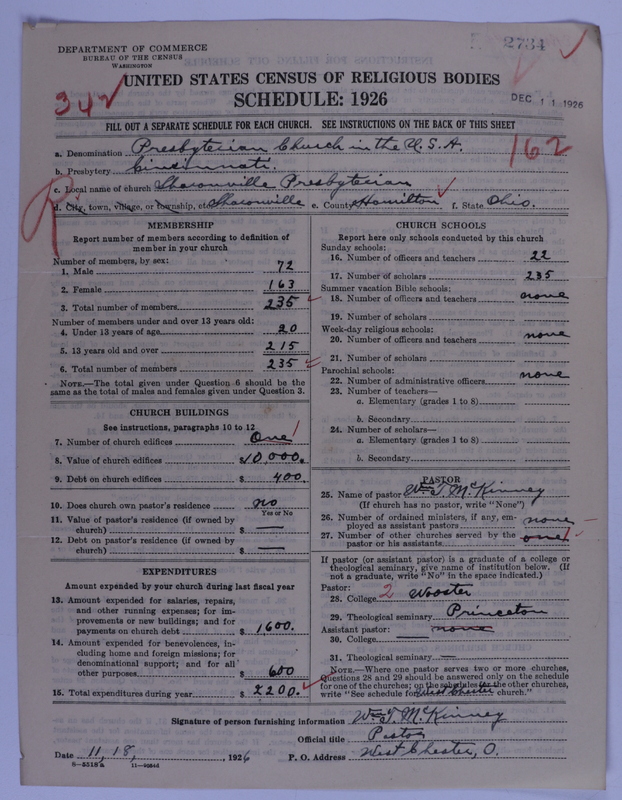 DEPARTMENT OF COMMERCE
BUREAU OF THE CENSUS
WASHINGTON
2734
UNITED STATES CENSUS OF RELIGIOUS BODIES
SCHEDULE: 1926
342
DEC 11 1926
FILL OUT A SEPARATE SCHEDULE FOR EACH CHURCH. SEE INSTRUCTIONS ON THE BACK OF THIS SHEET
a. Denomination Presbyterian Church in the U.S.A.
162
b. Presbytery Cincinnati.
c. Local name of church Sharonville Presbyterian
d. City, town, village, or township, etc. Sharonville e. County Hamilton f. State Ohio.
R
MEMBERSHIP
Report number of members according to definition of
member in your church
Number of members, by sex:
1. Male 72
2. Female 163
3. Total number of members 235
Number of members under and over 13 years old:
4. Under 13 years of age 20
5. 13 years old and over 215
6. Total number of members 235
NOTE.—The total given under Question 6 should be the
same as the total of males and females given under Question 3.
CHURCH BUILDINGS
See instructions, paragraphs 10 to 12
7. Number of church edifices One 1
8. Value of church edifices $10,000.
9. Debt on church edifices $ 400.
10. Does church own pastor's residence no
Yes or No
11. Value of pastor's residence (if owned by
church) $ —
12. Debt on pastor's residence (if owned by
church) $ —
EXPENDITURES
Amount expended by your church during last fiscal year
13. Amount expended for salaries, repairs,
and other running expenses; for im-
provements or new buildings; and for
payments on church debt $ 1,600.
14. Amount expended for benevolences, in-
cluding home and foreign missions; for
denominational support; and for all
other purposes $ 600
15. Total expenditures during year $ 2200.
CHURCH SCHOOLS
Report here only schools conducted by this church
Sunday schools:
16. Number of officers and teachers 22
17. Number of scholars 235
Summer vacation Bible schools:
18. Number of officers and teachers none
19. Number of scholars
Week-day religious schools:
20. Number of officers and teachers none
21. Number of scholars
Parochial schools:
22. Number of administrative officers none
23. Number of teachers—
a. Elementary (grades 1 to 8)
b. Secondary
24. Number of scholars—
a. Elementary (grades 1 to 8)
b. Secondary
PASTOR
25. Name of pastor Wm T. McKinney
(If church has no pastor, write "None")
26. Number of ordained ministers, if any, em-
ployed as assistant pastors none —
27. Number of other churches served by the
pastor or his assistants one 1
If pastor (or assistant pastor) is a graduate of a college or
theological seminary, give name of institution below. (If
not a graduate, write "No" in the space indicated.)
Pastor:
28. College 2 Wooster
29. Theological seminary Princeton
Assistant pastor: none
30. College
31. Theological seminary —
NOTE.—Where one pastor serves two or more churches,
Questions 28 and 29 should be answered only on the schedule
for one of the churches; on the schedules for the other churches,
write "See schedule for West Chester church."
Signature of person furnishing information Wm T. McKinney
Official title Pastor
Date 11, 18, 1926 P. O. Address West Chester, O.
8-5518a